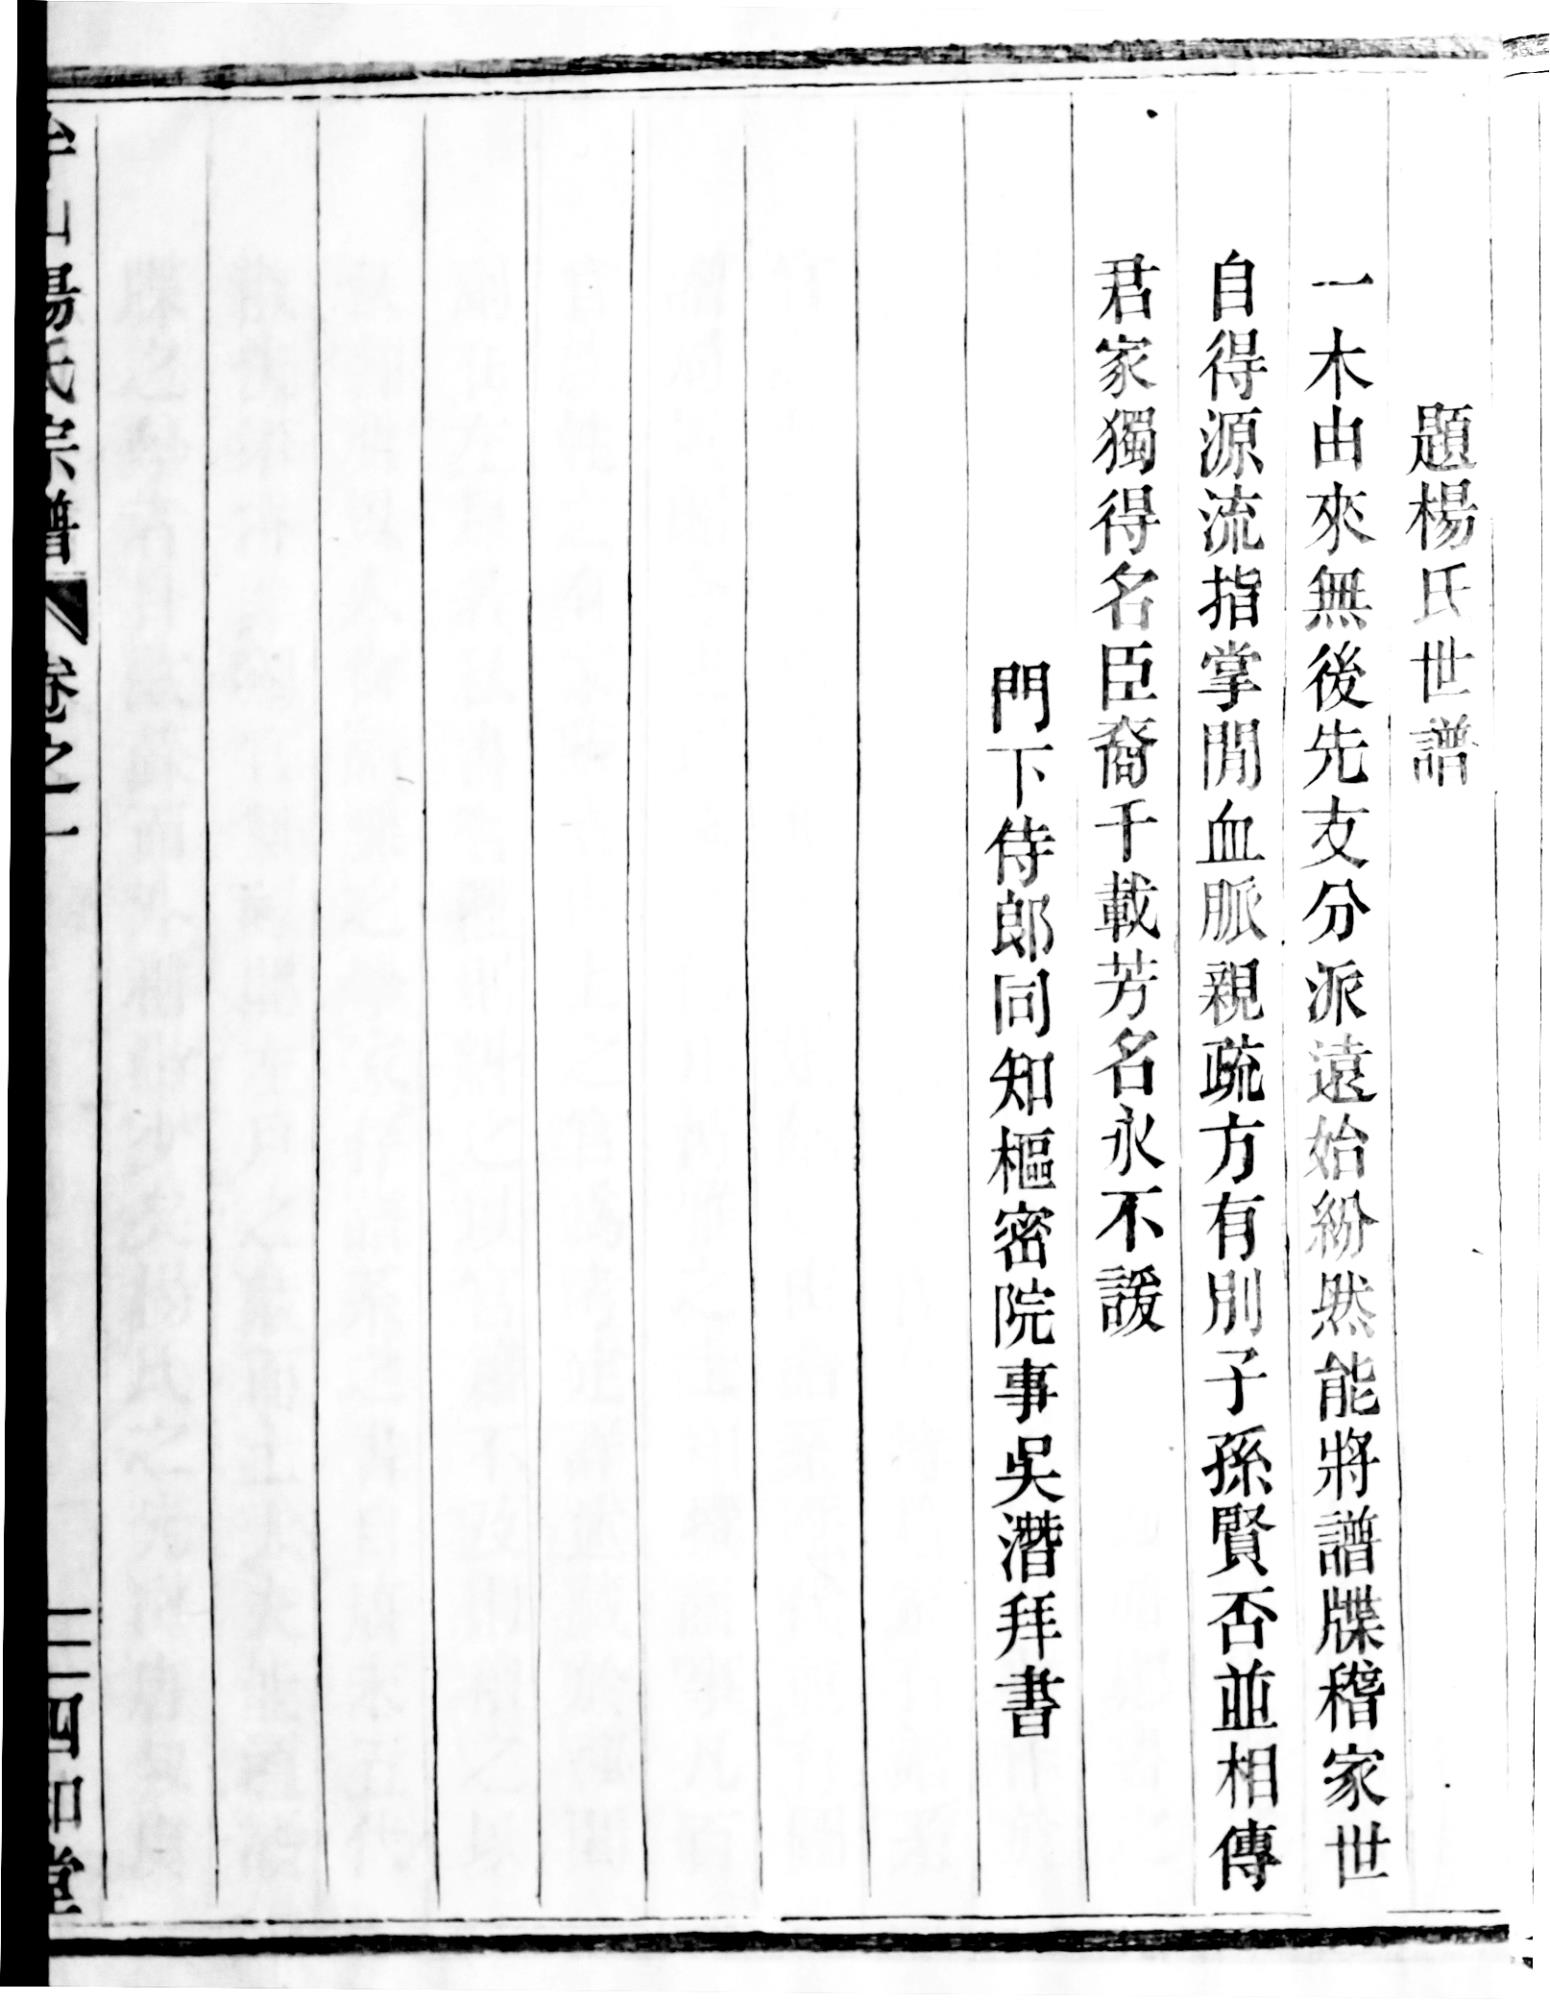 題楊氏世譜
一木由來無後先支分派遠始紛然能將譜牒稽家世
自得源流指掌間血脈親疏方有別子孫賢否並相傳
君家獨得名臣裔千載芳名永不諼
門下侍郎同知樞密院事吳潛拜書
山楊氏宗譜 卷之一
二 四知堂